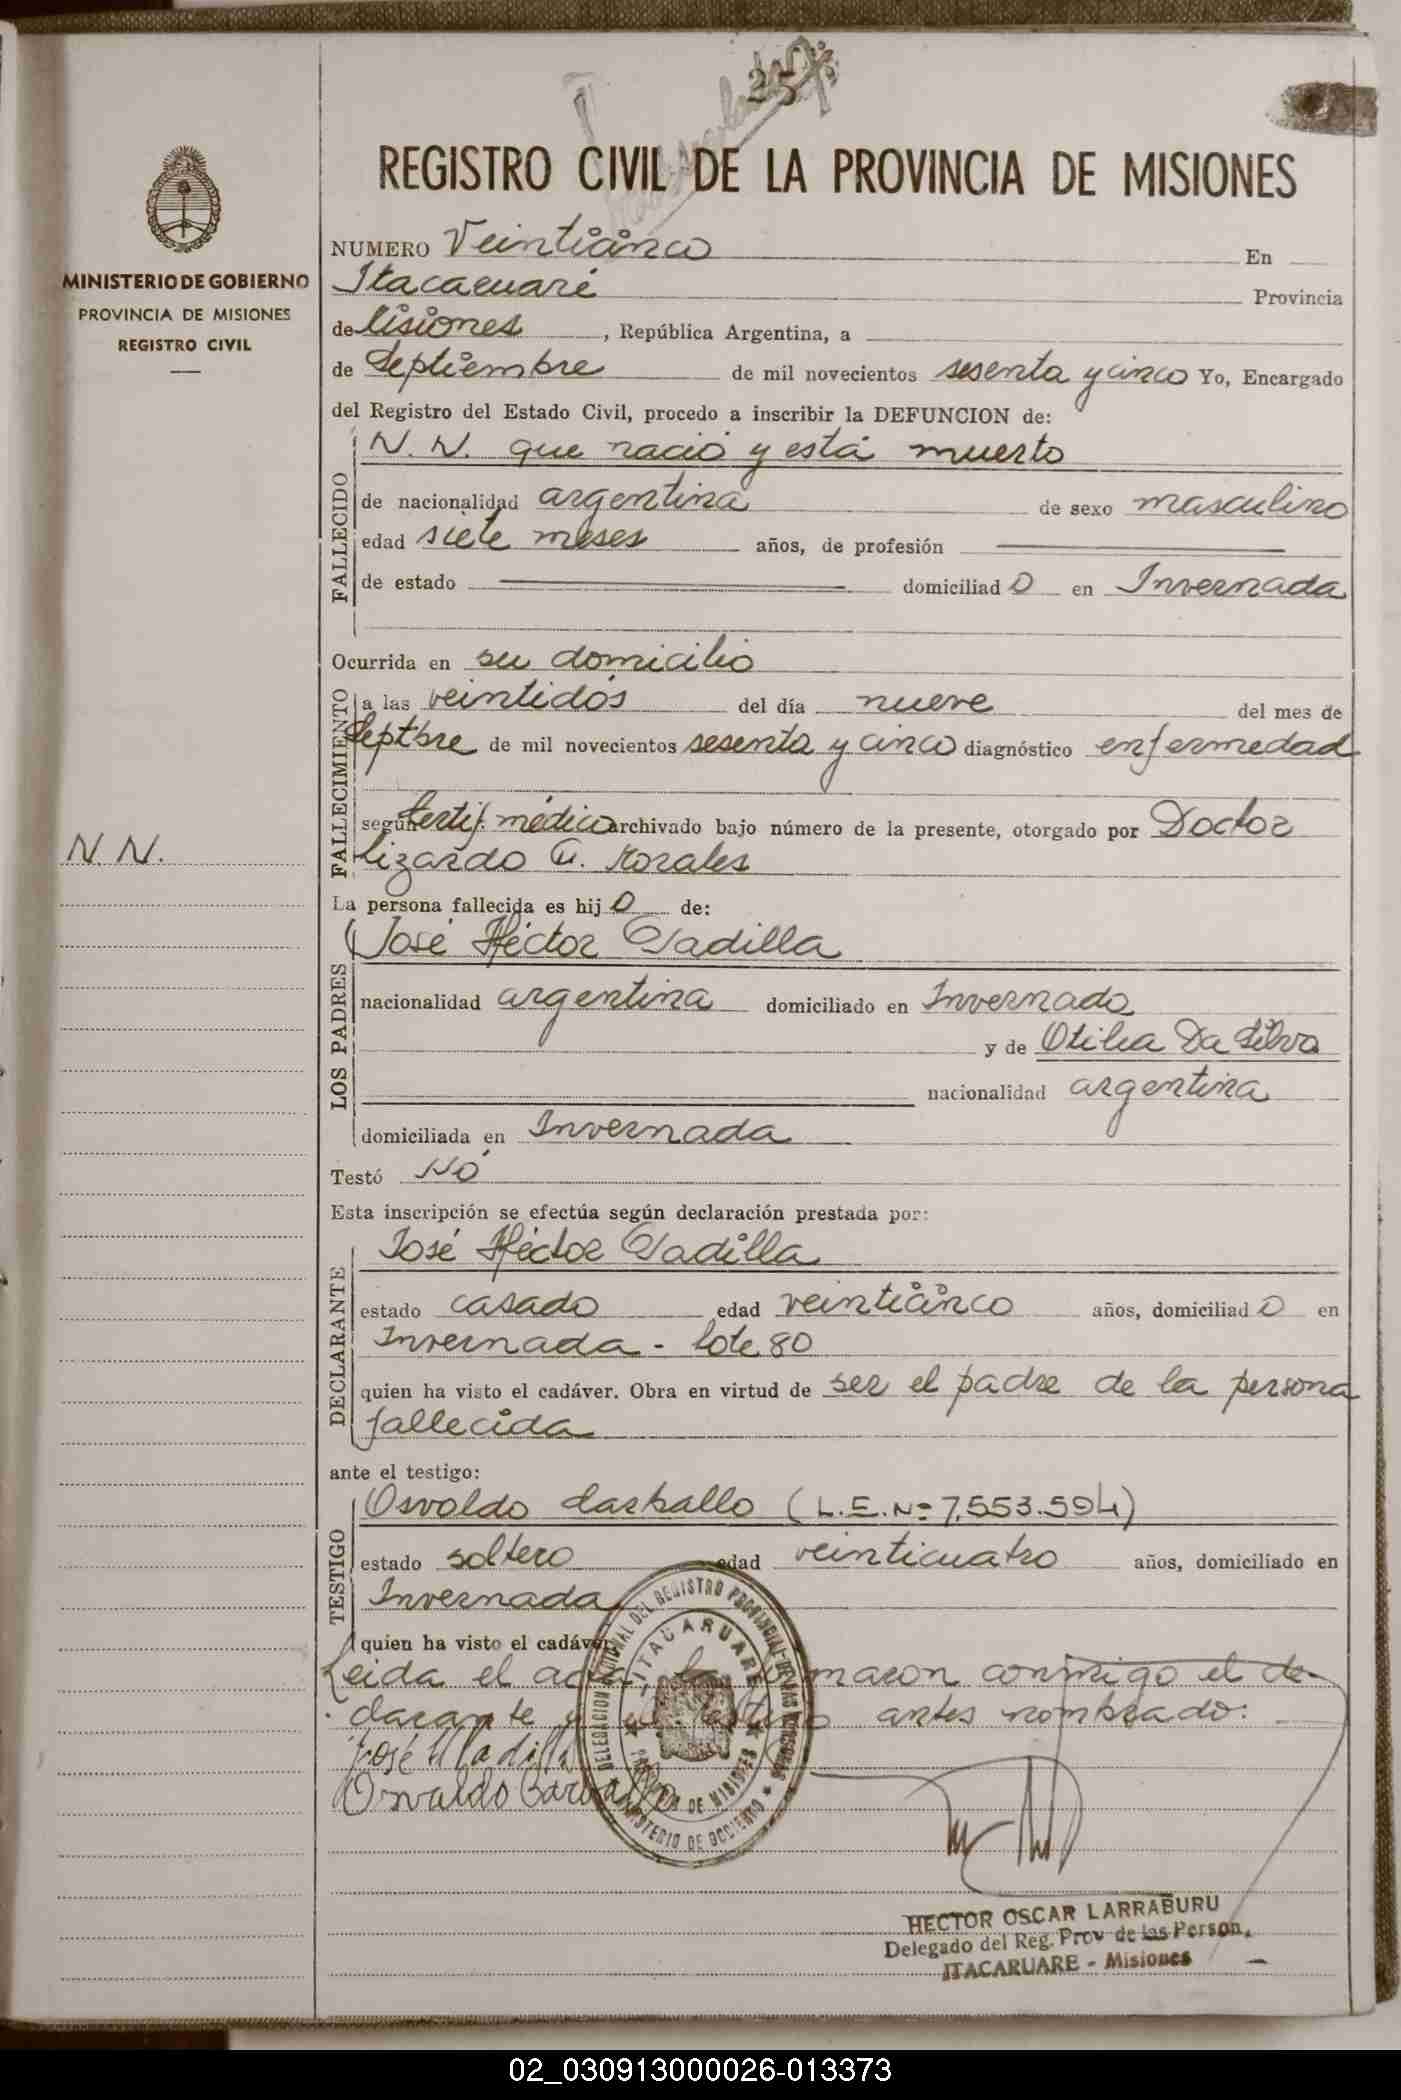 25
REGISTRO CIVIL DE LA PROVINCIA DE MISIONES
MINISTERIO DE GOBIERNO
PROVINCIA DE MISIONES
REGISTRO CIVIL
NUMERO Veinticinco En
Itacaruaré Provincia
de Misiones, República Argentina, a
de Septiembre de mil novecientos sesenta y cinco Yo, Encargado
del Registro del Estado Civil, procedo a inscribir la DEFUNCION de:
FALLECIDO
N. N. que nació y está muerto
de nacionalidad argentina de sexo masculino
edad siete meses años, de profesión
de estado domiciliado en Invernada
Ocurrida en su domicilio
FALLECIMIENTO
a las veintidós del día nueve del mes de
Septbre de mil novecientos sesenta y cinco diagnóstico enfermedad
según Certif. médico archivado bajo número de la presente, otorgado por Doctor
N. N.
Lizardo A. Morales
La persona fallecida es hijo de:
LOS PADRES
José Héctor Padilla
nacionalidad argentina domiciliado en Invernada
y de Otilia Da Silva
nacionalidad argentina
domiciliada en Invernada
Testó No
Esta inscripción se efectúa según declaración prestada por:
DECLARANTE
José Héctor Padilla
estado casado edad veinticinco años, domiciliado en
Invernada - lote 80
quien ha visto el cadáver. Obra en virtud de ser el padre de la persona
fallecida
ante el testigo:
TESTIGO
Osvaldo Carballo (L.E.Nº 7.553.594)
estado soltero edad veinticuatro años, domiciliado en
Invernada
quien ha visto el cadáver
Leida el acta, la firmaron conmigo el de-
clarante y el testigo antes nombrado:
José H Padilla
Osvaldo Carballo
DELEGACION REGIONAL DEL REGISTRO PROVINCIAL DE LAS PERSONAS
ITACARUARE
PROVINCIA DE MISIONES
MINISTERIO DE GOBIERNO
HECTOR OSCAR LARRABURU
Delegado del Reg. Prov de las Person.
ITACARUARE - Misiones
02_030913000026-013373